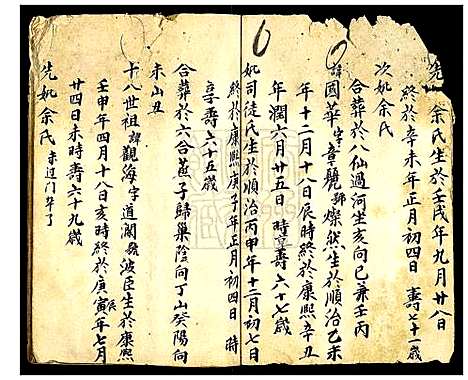 先妣余氏生於壬戌年九月廿八
終於辛未年正月初四日 壽七十一歲
次妣余氏
合葬於八仙過河坐亥向巳兼壬丙
諱國華字章麓號燦然生於順治己未
年十二月十八日辰時終於康熙辛丑
年潤六月廿五日 時享壽六十七歲
妣司徒氏生於順治丙申年十二月初七日
終於康熙庚子年正月初四日 時
享壽六十五歲
合葬於六合燕子歸巢陰向丁山癸陽向
未山丑
十八世祖諱觀海字道闊號波臣生於康熙
壬申年四月十八日亥時終於庚寅年七月
廿四日未時壽六十九歲
先妣余氏 未过门卒了